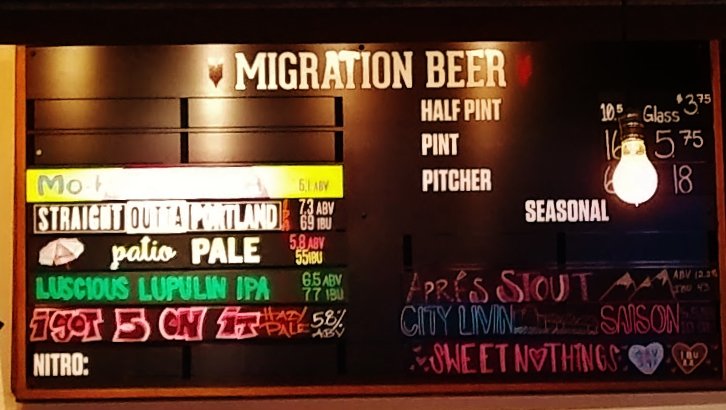 MIGRATION BEER
HALF PINT 10.5 Glass $3.75
PINT 5.75
PITCHER 18
SEASONAL
6.1 ABV
STRAIGHT OUTTA PORTLAND IPA 7.3 ABV 69 IBU
patio PALE 5.8 ABV 55 IBU
LUSCIOUS LUPULIN IPA 6.5 ABV 77 IBU
I GOT 5 ON IT HAZY PALE 5.8% ABV
NITRO:
APRÉS STOUT ABV IBU 43
CITY LIVIN SAISON
SWEET NOTHINGS IBU